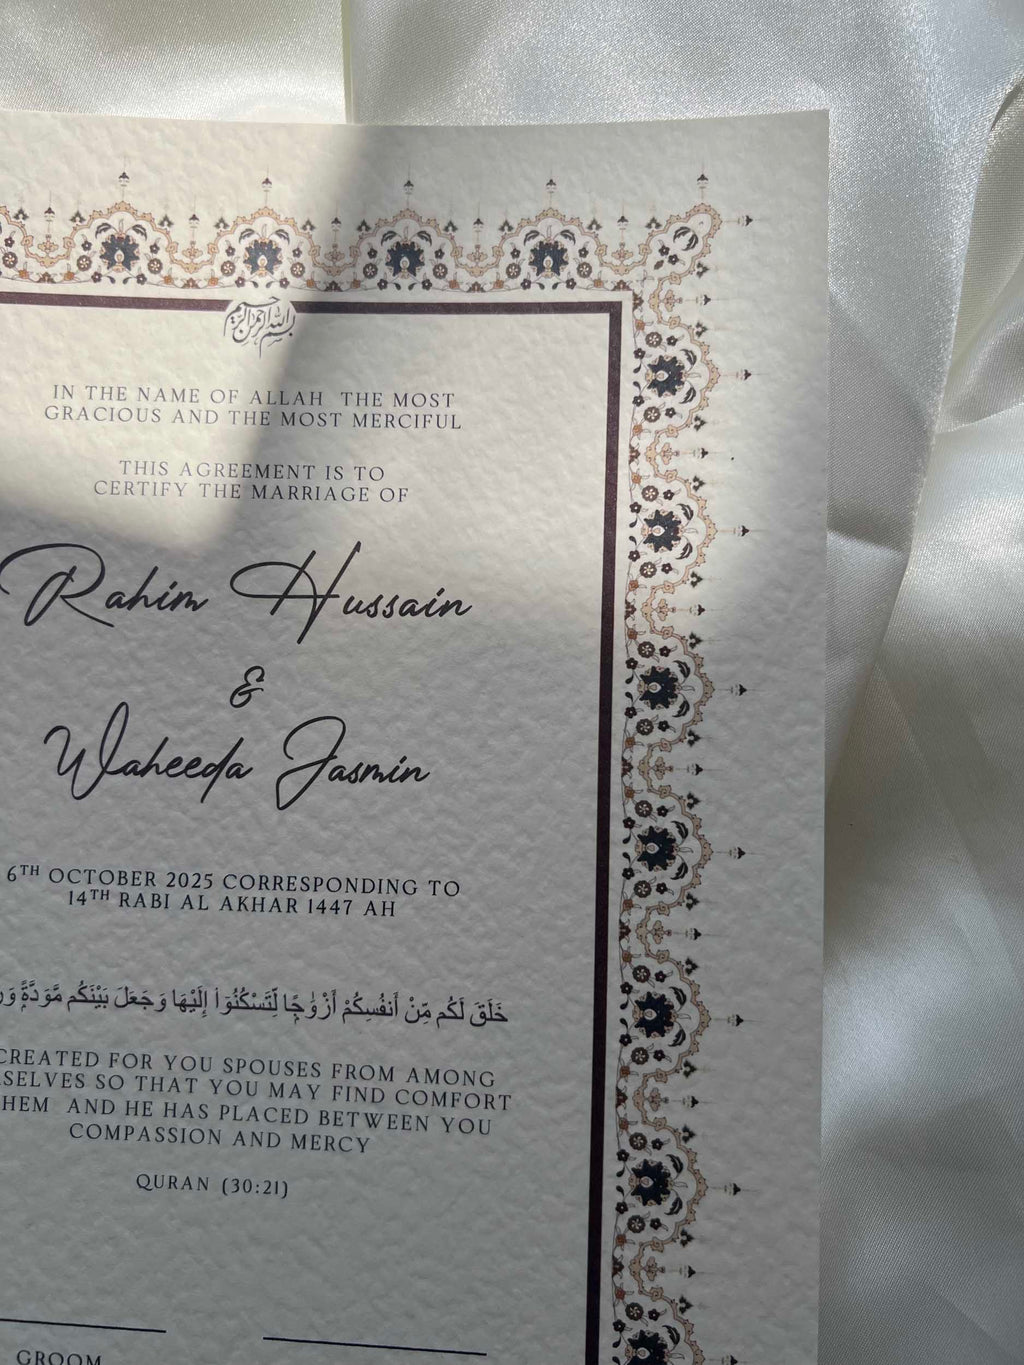 بسم الله الرحمن الرحيم
IN THE NAME OF ALLAH THE MOST
GRACIOUS AND THE MOST MERCIFUL
THIS AGREEMENT IS TO
CERTIFY THE MARRIAGE OF
Rahim Hussain
&
Waheeda Jasmin
6TH OCTOBER 2025 CORRESPONDING TO
14TH RABI AL AKHAR 1447 AH
خَلَقَ لَكُم مِّنْ أَنفُسِكُمْ أَزْوَٰجًا لِّتَسْكُنُوٓا۟ إِلَيْهَا وَجَعَلَ بَيْنَكُم مَّوَدَّةً
CREATED FOR YOU SPOUSES FROM AMONG
SELVES SO THAT YOU MAY FIND COMFORT
HEM AND HE HAS PLACED BETWEEN YOU
COMPASSION AND MERCY
QURAN (30:21)
GROOM